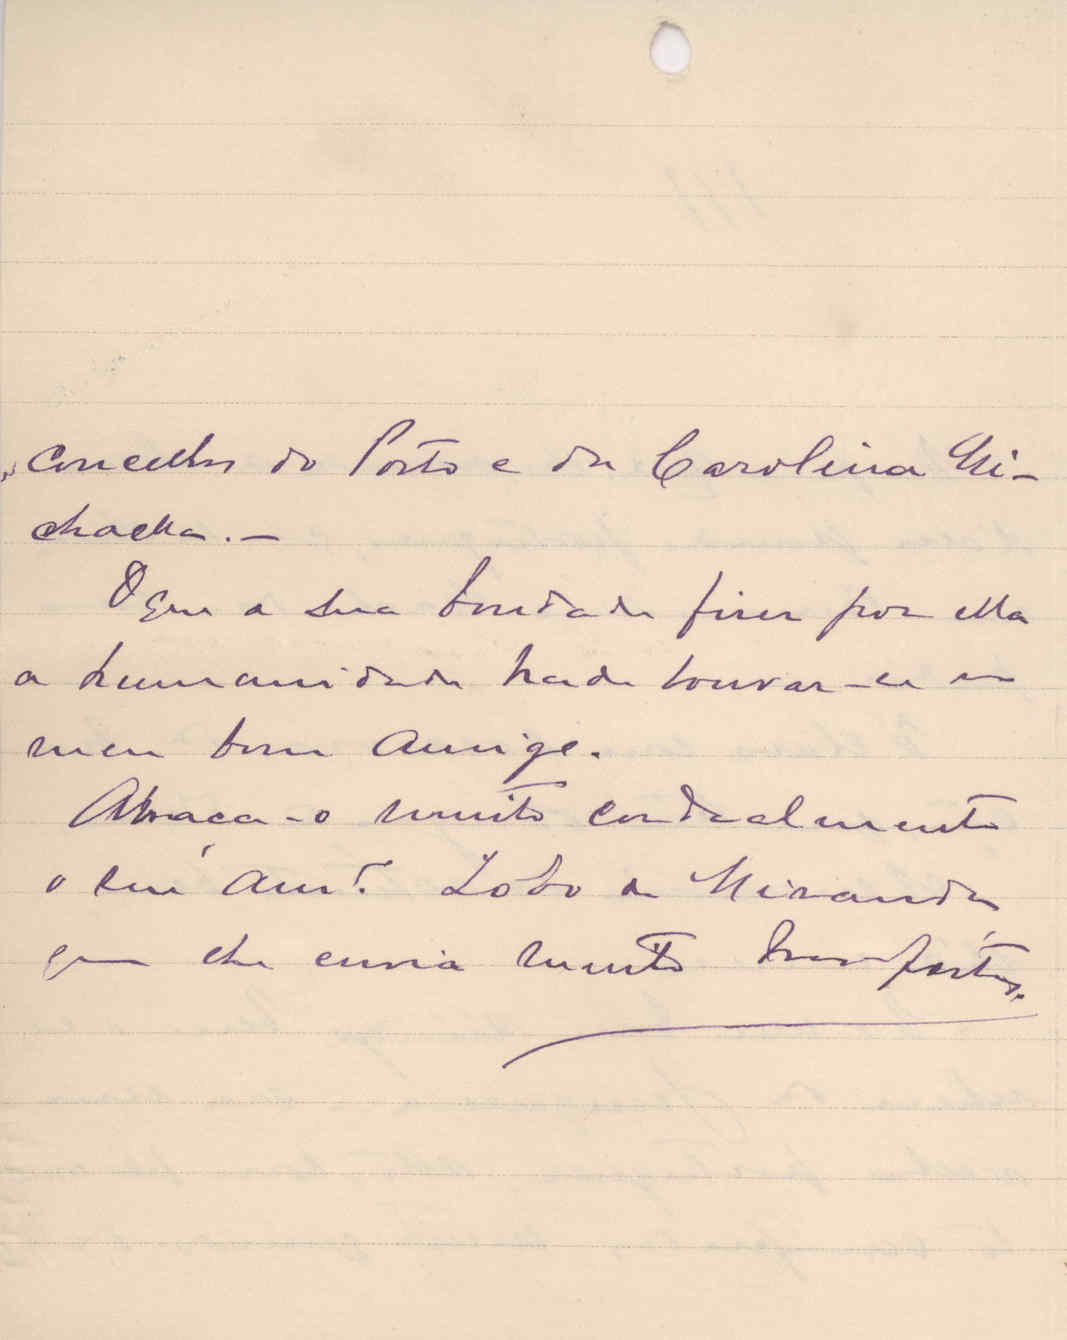 concellos do Porto e da Carolina Mi-
chaella. -
O que a sua bondade fizer por ella
a humanidade hade louvar-
meu bom amigo.
Abraça-o muito cordealmente
o seu am.º Lobo de Miranda
que lhe envia muito boas festas.